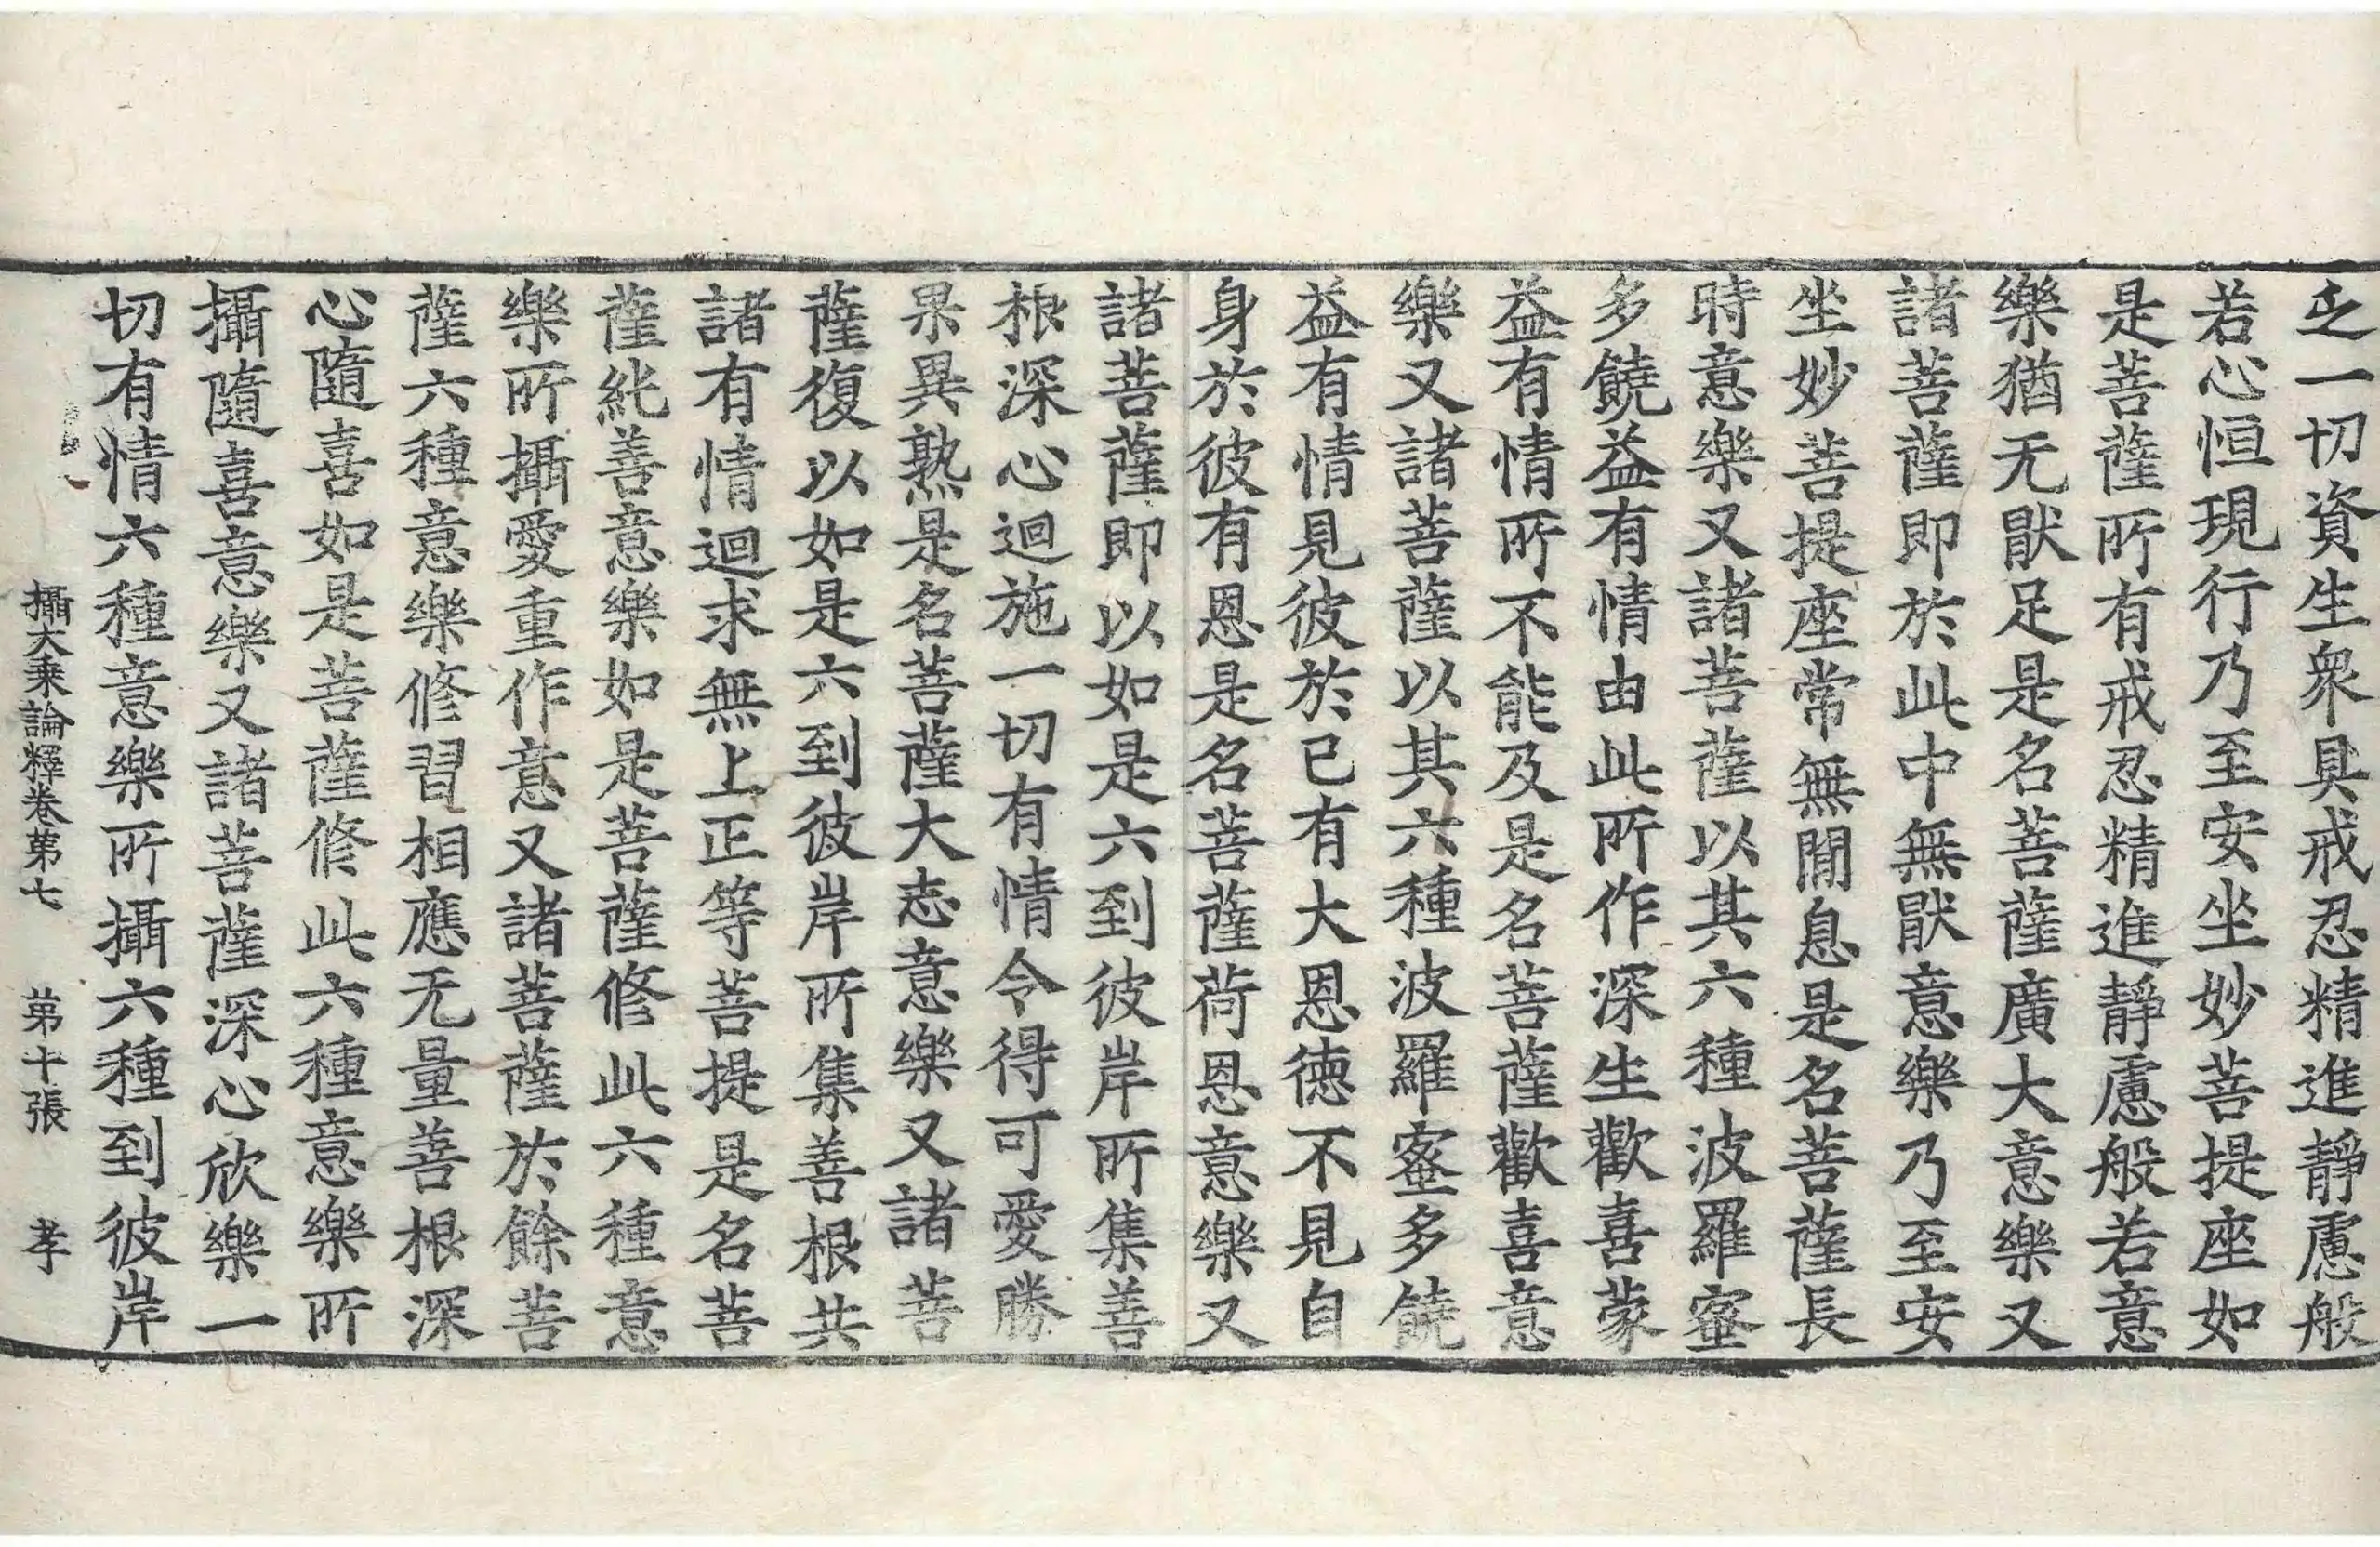 乏一切資生衆具戒忍精進靜慮般
若心恒現行乃至安坐妙菩提座如
是菩薩所有戒忍精進靜慮般若意
樂猶无猒足是名菩薩廣大意樂又
諸菩薩即於此中無猒意樂乃至安
坐妙菩提座常無閒息是名菩薩長
時意樂又諸菩薩以其六種波羅蜜
多饒益有情由此所作深生歡喜蒙
益有情所不能及是名菩薩歡喜意
樂又諸菩薩以其六種波羅蜜多饒
益有情見彼於已有大恩德不見自
身於彼有恩是名菩薩荷恩意樂又
諸菩薩即以如是六到彼岸所集善
根深心迴施一切有情令得可愛勝
果異熟是名菩薩大志意樂又諸菩
薩復以如是六到彼岸所集善根共
諸有情迴求無上正等菩提是名菩
薩純善意樂如是菩薩修此六種意
樂所攝愛重作意又諸菩薩於餘菩
薩六種意樂修習相應无量善根深
心隨喜如是菩薩修此六種意樂所
攝隨喜意樂又諸菩薩深心欣樂一
切有情六種意樂所攝六種到彼岸
攝大乗論釋卷第七 第十張 孝